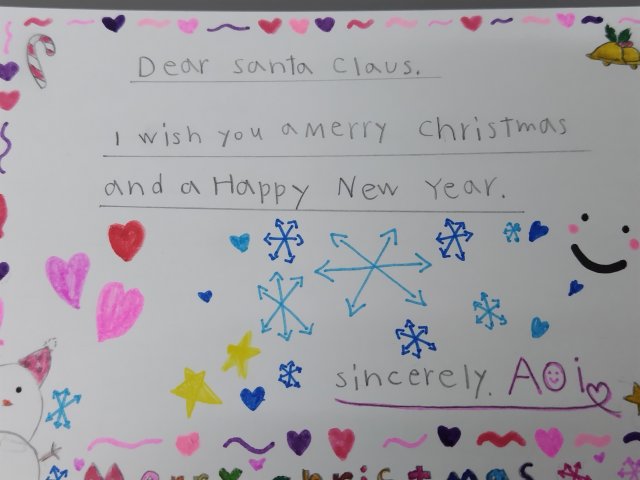 Dear santa Claus.
I wish you a merry christmas
and a Happy New Year.
sincerely. AOi
Merry christmas